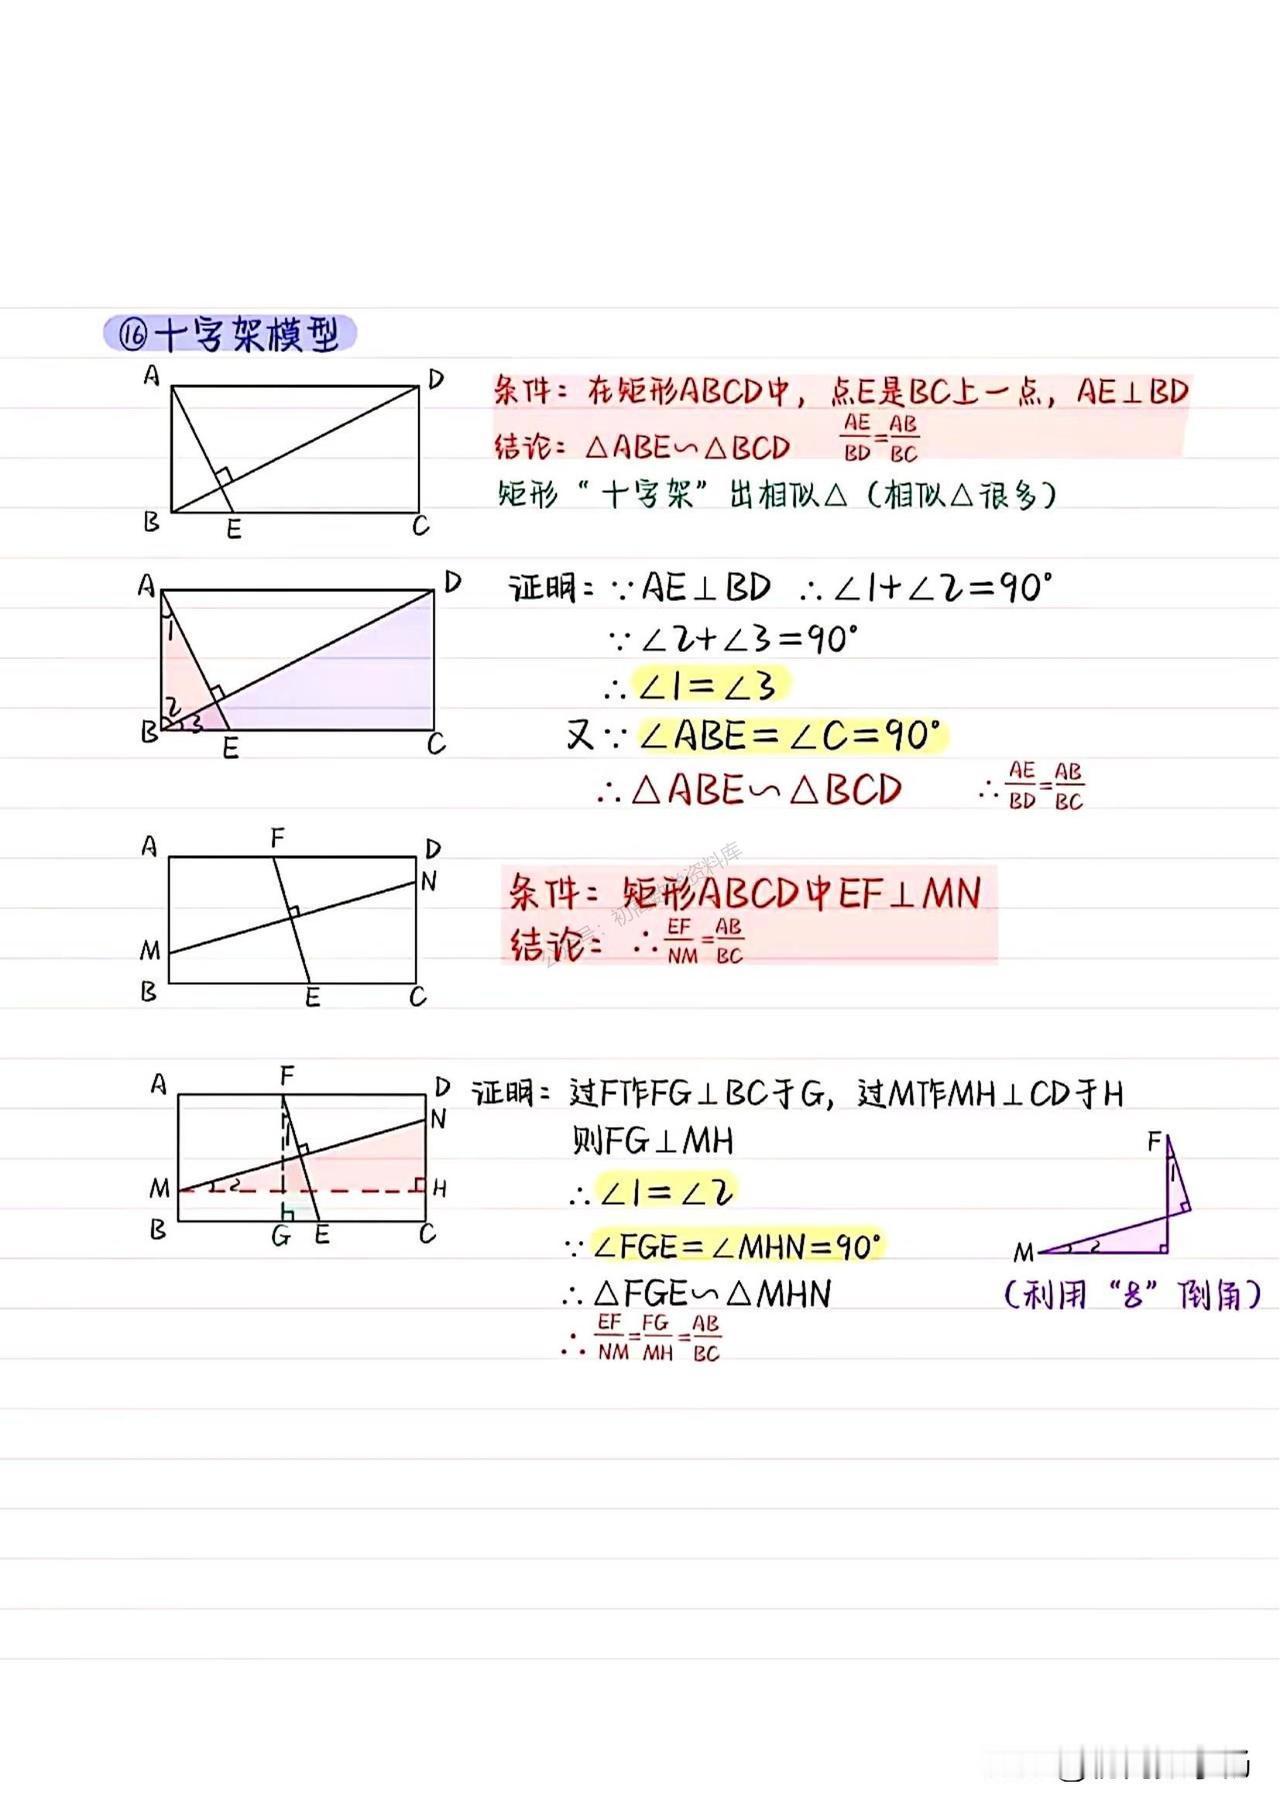 ⑯十字架模型
A D
B E C
条件：在矩形ABCD中，点E是BC上一点，AE⊥BD
结论：△ABE∽△BCD AE/BD=AB/BC
矩形“十字架”出相似△（相似△很多）
A D
1
2 3
B E C
证明：∵AE⊥BD ∴∠1+∠2=90°
∵∠2+∠3=90°
∴∠1=∠3
又∵∠ABE=∠C=90°
∴△ABE∽△BCD ∴AE/BD=AB/BC
A F D
N
M
B E C
条件：矩形ABCD中EF⊥MN
结论：∴EF/NM=AB/BC
A F D
N
1
M 2 H
B G E C
证明：过F作FG⊥BC于G，过M作MH⊥CD于H
则FG⊥MH
∴∠1=∠2
∵∠FGE=∠MHN=90°
∴△FGE∽△MHN
∴EF/NM=FG/MH=AB/BC
F
1
M 2
（利用“8”倒角）